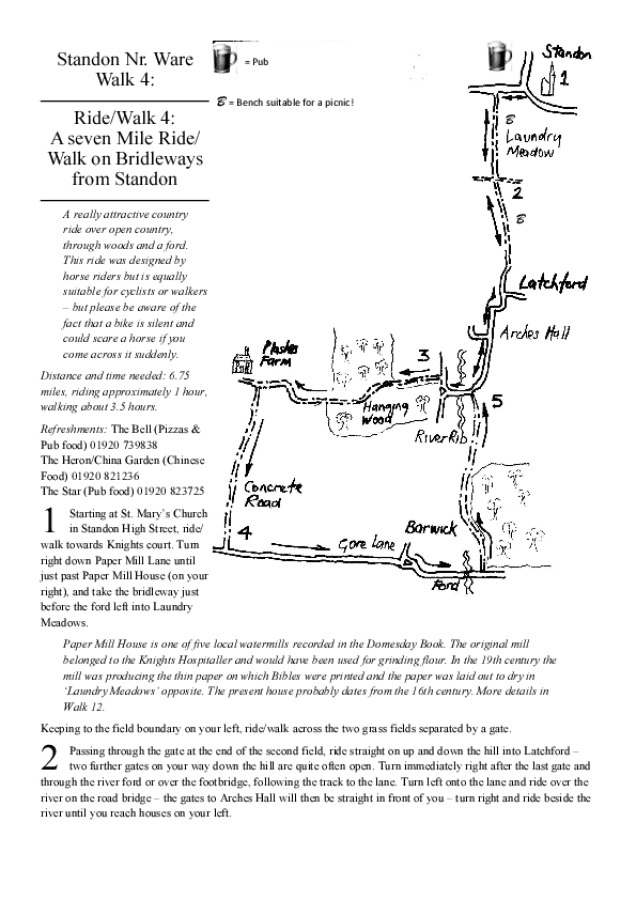 Standon Nr. Ware
Walk 4:
Ride/Walk 4:
A seven Mile Ride/
Walk on Bridleways
from Standon
A really attractive country
ride over open country,
through woods and a ford.
This ride was designed by
horse riders but is equally
suitable for cyclists or walkers
– but please be aware of the
fact that a bike is silent and
could scare a horse if you
come across it suddenly.
Distance and time needed: 6.75
miles, riding approximately 1 hour,
walking about 3.5 hours.
Refreshments: The Bell (Pizzas &
Pub food) 01920 739838
The Heron/China Garden (Chinese
Food) 01920 821236
The Star (Pub food) 01920 823725
1 Starting at St. Mary's Church
in Standon High Street, ride/
walk towards Knights court. Turn
right down Paper Mill Lane until
just past Paper Mill House (on your
right), and take the bridleway just
before the ford left into Laundry
Meadows.
= Pub
B = Bench suitable for a picnic!
Standon
1
B
Laundry
Meadow
2
B
Latchford
Arches Hall
3
Plashes
Farm
Hanging
Wood
5
River Rib
Concrete
Road
4
Gore Lane
Barwick
Ford
Paper Mill House is one of five local watermills recorded in the Domesday Book. The original mill
belonged to the Knights Hospitaller and would have been used for grinding flour. In the 19th century the
mill was producing the thin paper on which Bibles were printed and the paper was laid out to dry in
'Laundry Meadows' opposite. The present house probably dates from the 16th century. More details in
Walk 12.
Keeping to the field boundary on your left, ride/walk across the two grass fields separated by a gate.
2 Passing through the gate at the end of the second field, ride straight on up and down the hill into Latchford –
two further gates on your way down the hill are quite often open. Turn immediately right after the last gate and
through the river ford or over the footbridge, following the track to the lane. Turn left onto the lane and ride over the
river on the road bridge – the gates to Arches Hall will then be straight in front of you – turn right and ride beside the
river until you reach houses on your left.